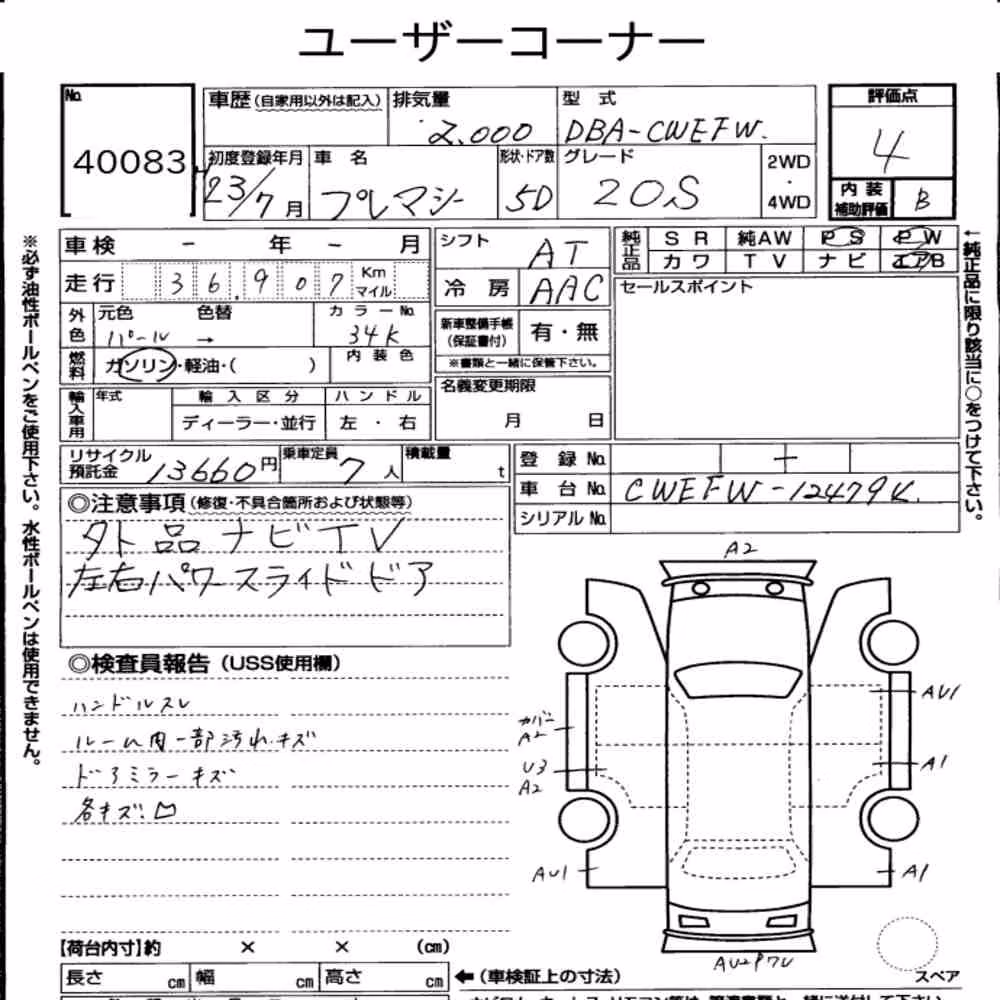 ユーザーコーナー
No. 40083
車歴(自家用以外は記入) 排気量 2,000 型式 DBA-CWEFW.
初度登録年月 23/7月 車名 プレマシー 形状・ドア数 5D グレード 20S 2WD・4WD
評価点 4
内装補助評価 B
車検 - 年 - 月
走行 36,907 Km マイル
外色 元色 パール 色替 → カラーNo. 34K
燃料 ガソリン・軽油・( ) 内装色
輸入車用 年式 輸入区分 ディーラー・並行 ハンドル 左・右
シフト AT
冷房 AAC
新車整備手帳(保証書付) 有・無
※書類と一緒に保管下さい。
名義変更期限 月 日
純正品 SR 純AW PS PW
カワ TV ナビ エアB
セールスポイント
リサイクル預託金 13660円 乗車定員 7人 積載量 t
登録No.
車台No. CWEFW-12479K.
シリアルNo.
◎注意事項(修復・不具合箇所および状態等)
外品ナビTV
左右パワースライドドア
◎検査員報告(USS使用欄)
ハンドルスレ
ルーム内一部汚れ.キズ
ドアミラーキズ
各キズ.凹
A2
カバー
A2
U3
A2
AU1
AU1
A1
A1
スペア
【荷台内寸】約 × × (cm)
長さ cm 幅 cm 高さ cm ←(車検証上の寸法)
※必ず油性ボールペンをご使用下さい。水性ボールペンは使用できません。
←純正品に限り該当に○をつけて下さい。